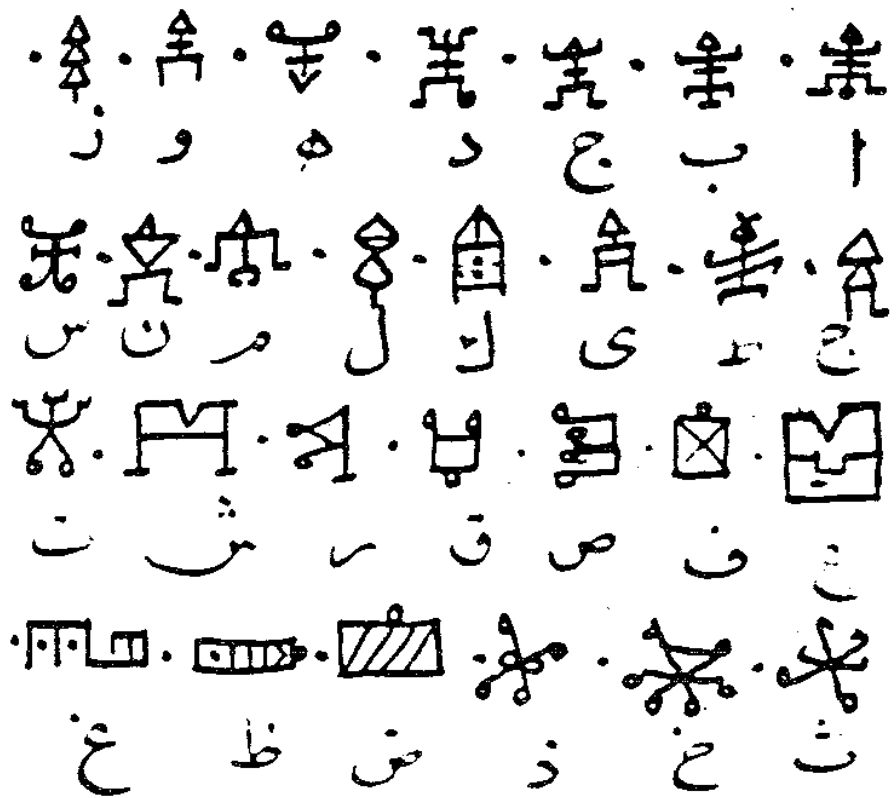 ا ب ج د ه و ز
ح ط ي ك ل م ن س
ع ف ص ق ر ش ت
ث خ ذ ض ظ غ